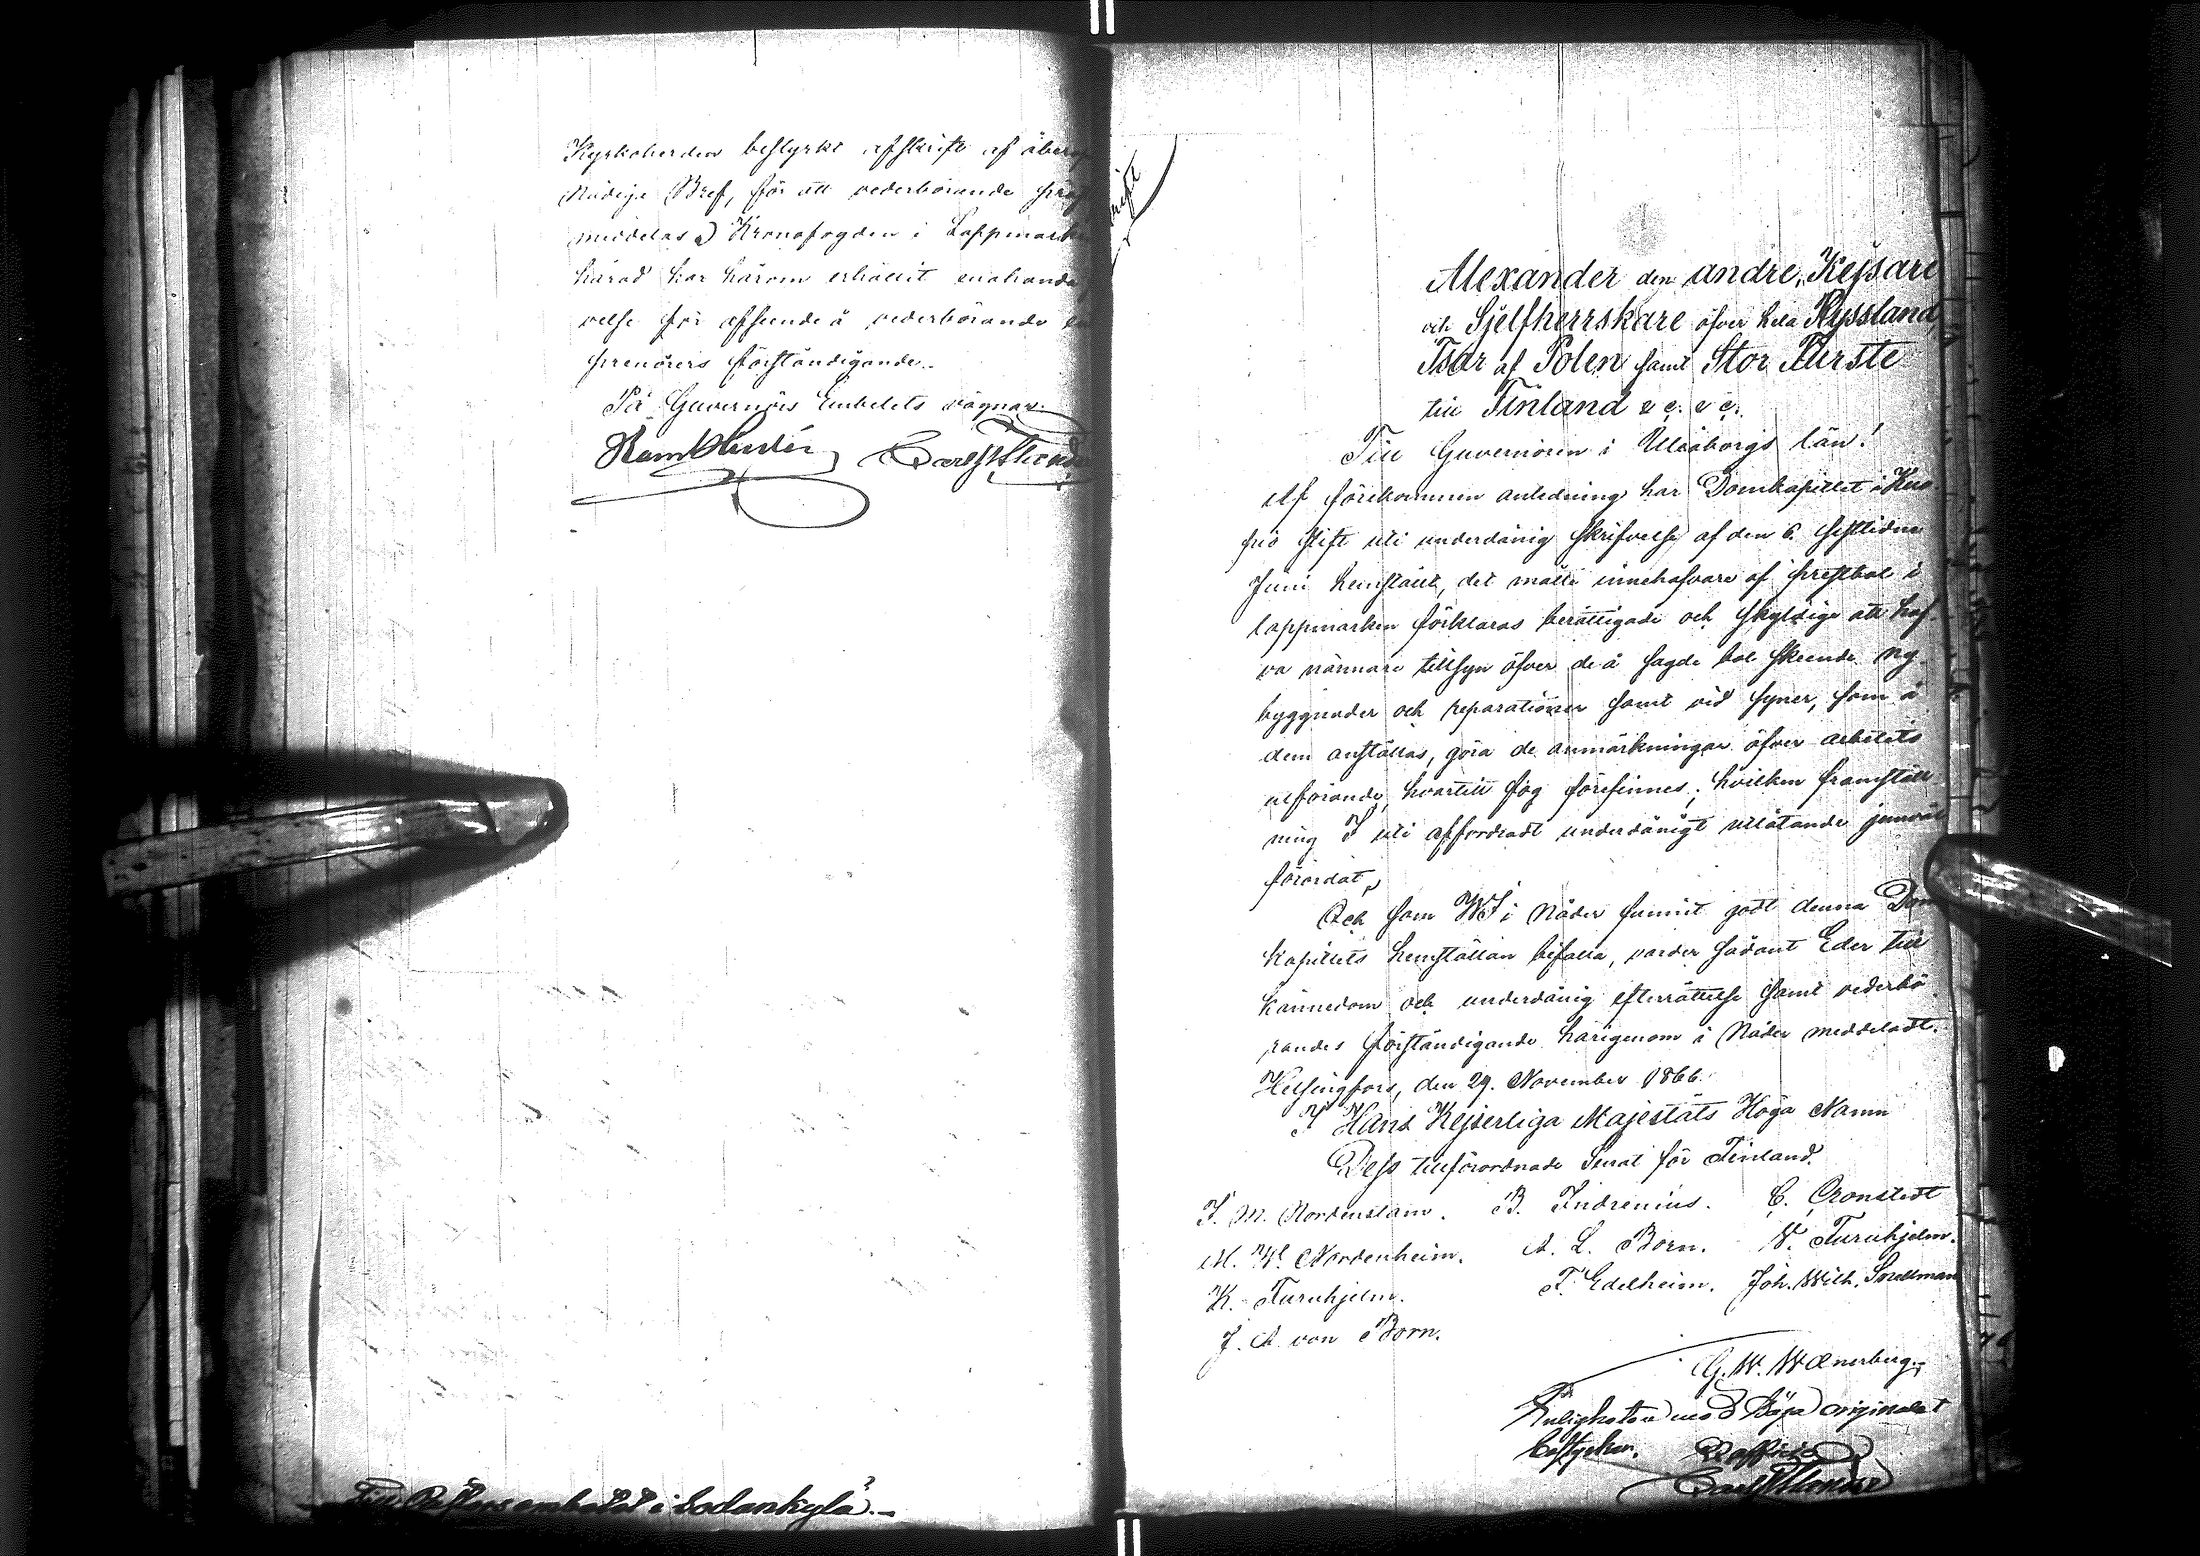 Kyrkoherden bestyrkt afskrift af åberop
Nådige Bref, för att vederbörande pres
meddelas. Kronofogden i Lappmark
härad har härom erhållit enahanda
velse för afseende å vederbörande
prenörers förständigande.
På Guvernörs Embetets vägnar:
Till Pastorsembetet i Sodankylä.
Alexander den andre, Kejsare
och Sjelfherrskare öfver hela Ryssland,
Tsar af Polen samt Stor Furste
till Finland &c. &c.
Till Guvernören i Uleåborgs län!
Af förekommen anledning har Domkapitlet i Kuo
pio stift uti underdånig skrifvelse af den 6. sistlidne
Juni hemstält, det måtte innehafvare af prestbol i
lappmarken förklaras berättigade och skyldige att haf
va närmare tillsyn öfver de å sagde bol skeende ny
byggnader och reparationer samt vid syner, som å
dem anställas, göra de anmärkningar öfver arbetets
utförande, hvartill fog förefinnes; hvilken framställ
ning I uti affordradt underdånigt utlåtande jemväl
förordat,
Och som Wi i Nåder funnit godt denna Dom
kapitlets hemställan bifalla, varder sådant Eder till
kännedom och underdånig efterrättelse samt vederbö
randes förständigande härigenom i Nåder meddeladt.
Helsingfors, den 29. November 1866.
I Hans Kejserliga Majestäts Höga Namn
Dess tillförordnade Senat för Finland.
J. M. Nordenstam. B. Indrenius. C. Cronstedt
M. W. Nordenheim. A. L. Born. V. Furuhjelm.
K. Furuhjelm. F. Edelheim. Joh. Wilh. Snellman
J. A. von Born.
G. W. Wænerberg.
Enligheten med Höga originalet
bestyrker. Ex officio